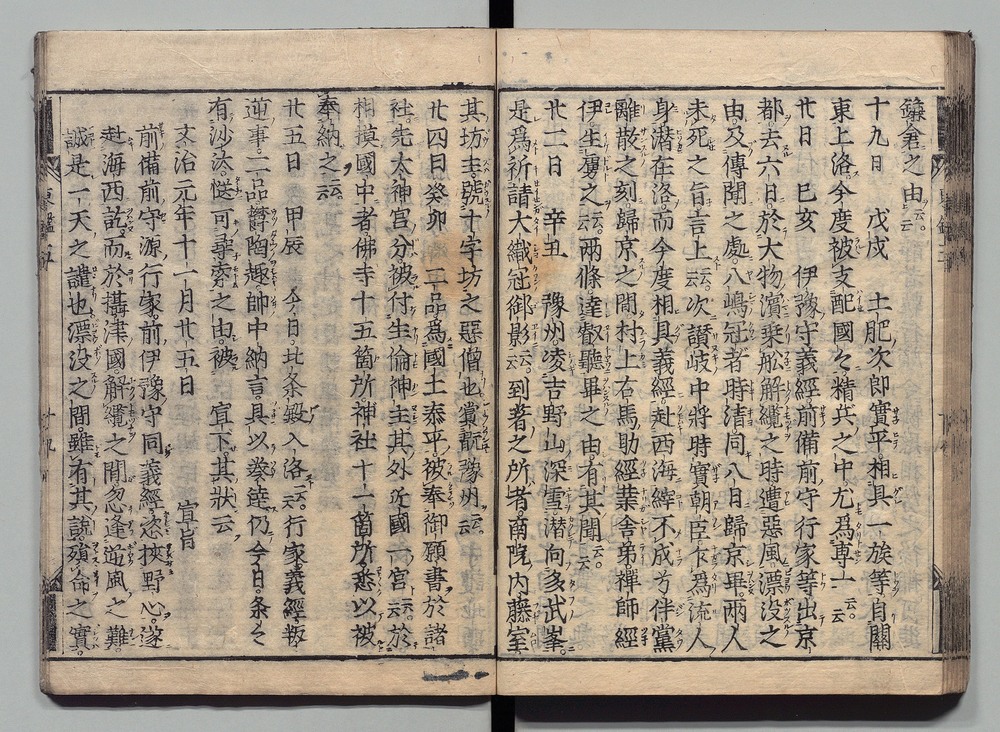 之由云云
十九日 戊戌 土肥次郎實平相具一族等自關
東上洛今度被支配國々精兵之中尤爲專一云云
廿日 己亥 伊豫守義經前備前守行家等出京
都去六日於大物濱乘舩解纜之時遭惡風漂没之
由及傳聞之處八嶋冠者時淸同八日歸京畢兩人
未死之旨言上云云次讃岐中將時實朝臣乍爲流人
身潜在洛而今度相具義經赴西海縡不成兮伴黨
離散之刻歸京之間村上右馬助經業舎弟禪師經
伊生虜之云云兩條達叡聽畢之由有其聞云云
廿二日 辛丑 豫州凌吉野山深雪潜向多武峯
是爲祈請大織冠御影云云到著之所者南院内藤室
其坊主號十字坊之惡僧也賞翫豫州云云
廿四日癸卯 二品爲國土泰平被奉御願書於諸
社先太神宮分被付生倫神主其外近國一宮云云於
相摸國中者佛寺十五箇所神社十一箇所悉以被
奉納之云云
廿五日 甲辰 今日北条殿入洛云云行家義經叛
逆事二品欝陶趣帥中納言具以奏達仍今日条々
有沙汰慥可尋索之由被 宣下其狀云
文治元年十一月廿五日 宣旨
前備前守源行家前伊豫守同義經恣挾野心遂
赴海西訖而於攝津國解纜之間忽逢逆風之難
誠是一天之譴也漂没之間雖有其說殞命之實